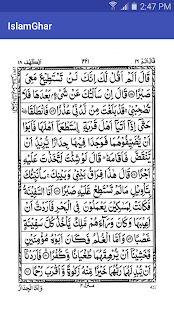 2:47 PM
IslamGhar
قال الم ١٦
الكهف ١٨
قَالَ اَلَمْ اَقُلْ لَّكَ اِنَّكَ لَنْ تَسْتَطِيْعَ مَعِىَ
صَبْرًا قَالَ اِنْ سَاَلْتُكَ عَنْ شَىْءٍۢ بَعْدَهَا فَلَا
تُصٰحِبْنِىْ قَدْ بَلَغْتَ مِنْ لَّدُنِّىْ عُذْرًا فَانْطَلَقَا
حَتّٰٓى اِذَآ اَتَيَآ اَهْلَ قَرْيَةِ اۨسْتَطْعَمَآ اَهْلَهَا فَاَبَوْا
اَنْ يُّضَيِّفُوْهُمَا فَوَجَدَا فِيْهَا جِدَارًا يُّرِيْدُ اَنْ
يَّنْقَضَّ فَاَقَامَهٗ قَالَ لَوْ شِئْتَ لَتَّخَذْتَ عَلَيْهِ
اَجْرًا قَالَ هٰذَا فِرَاقُ بَيْنِىْ وَبَيْنِكَ سَاُنَبِّئُكَ
بِتَاْوِيْلِ مَا لَمْ تَسْتَطِعْ عَّلَيْهِ صَبْرًا اَمَّا السَّفِيْنَةُ
فَكَانَتْ لِمَسٰكِيْنَ يَعْمَلُوْنَ فِى الْبَحْرِ فَاَرَدْتُّ اَنْ
اَعِيْبَهَا وَكَانَ وَرَآءَهُمْ مَّلِكٌ يَّاْخُذُ كُلَّ سَفِيْنَةٍ
غَصْبًا وَاَمَّا الْغُلٰمُ فَكَانَ اَبَوٰهُ مُؤْمِنَيْنِ
فَخَشِيْنَآ اَنْ يُّرْهِقَهُمَا طُغْيَانًا وَّكُفْرًا فَاَرَدْنَآ
اَنْ يُّبْدِلَهُمَا رَبُّهُمَا خَيْرًا مِّنْهُ زَكٰوةً وَّاَقْرَبَ رُحْمًا
وَاَمَّا الْجِدَارُ